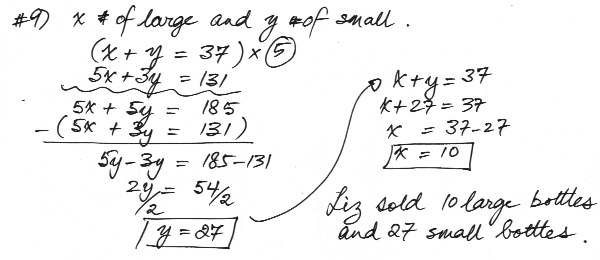 #9) x # of large and y # of small.
(x + y = 37) × 5
5x + 3y = 131
5x + 5y = 185
- (5x + 3y = 131)
5y - 3y = 185 - 131
2y/2 = 54/2
y = 27
x + y = 37
x + 27 = 37
x = 37 - 27
x = 10
Liz sold 10 large bottles
and 27 small bottles.